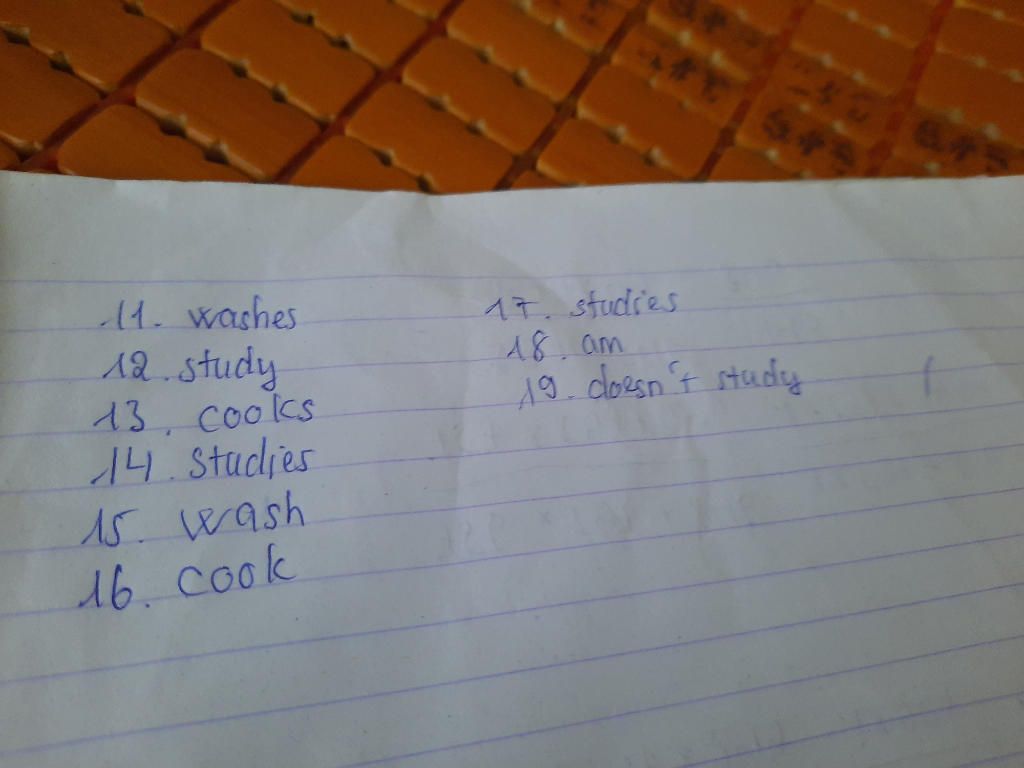 11. washes
12. study
13. cooks
14. studies
15. wash
16. cook
17. studies
18. am
19. doesn't study